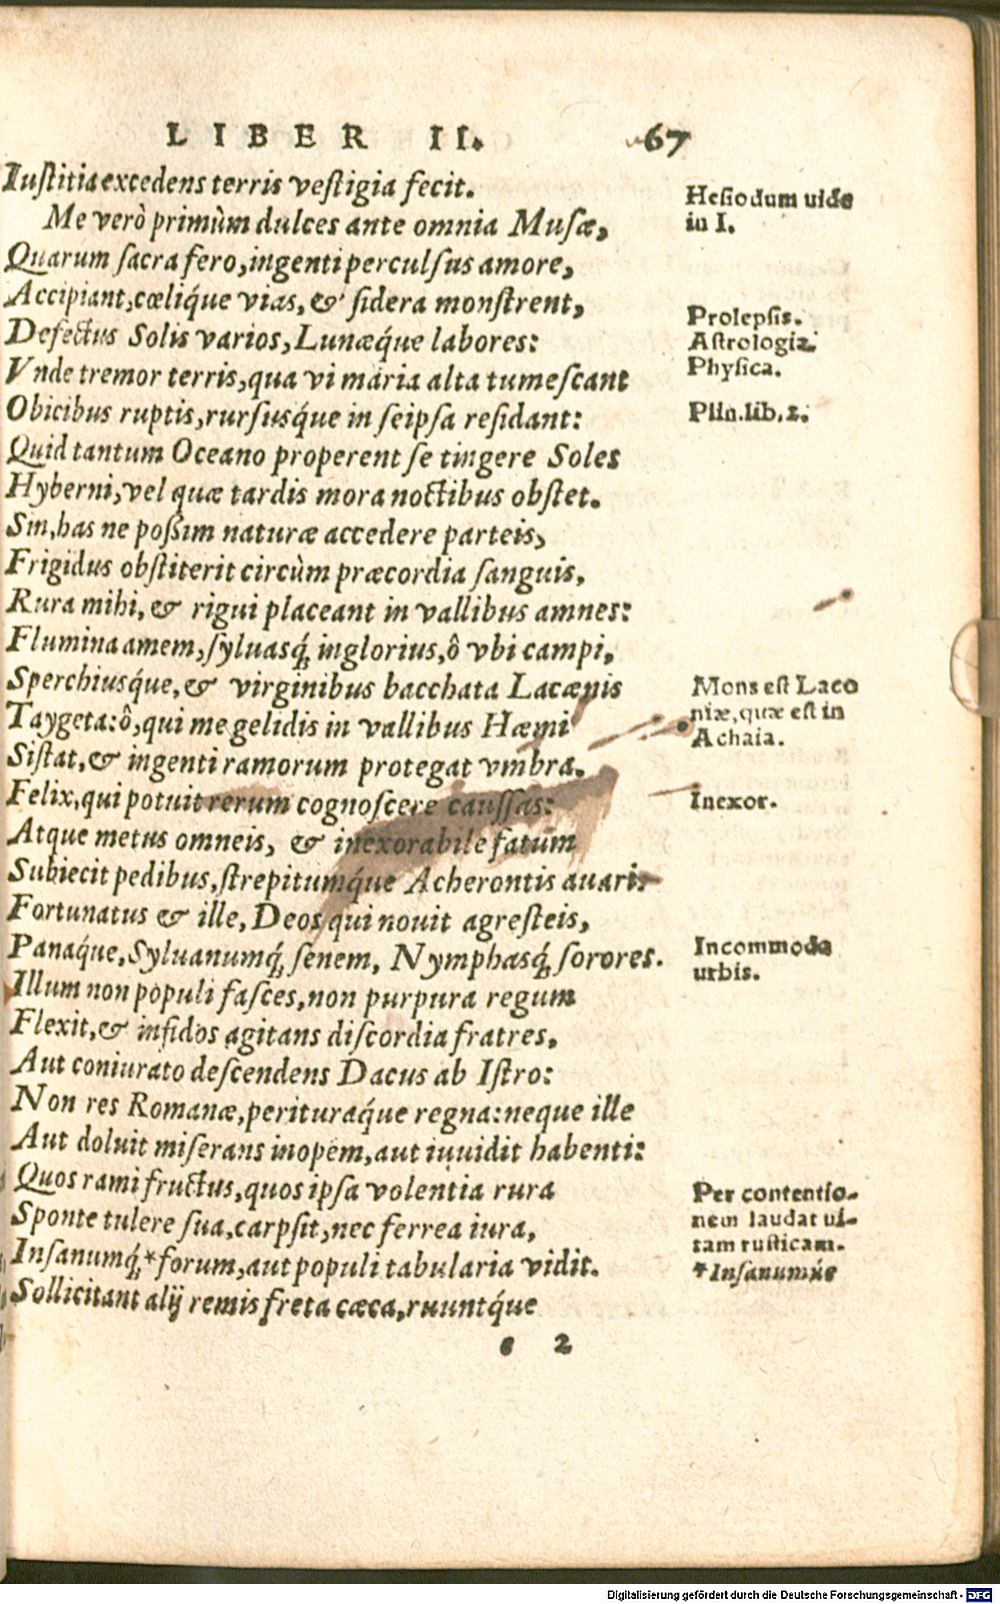 LIBER II. 67
Iustitia excedens terris vestigia fecit.
Me verò primùm dulces ante omnia Musæ,
Quarum sacra fero, ingenti perculsus amore,
Accipiant, cœliq́ue vias, & sidera monstrent,
Defectus Solis varios, Lunæq́ue labores:
Vnde tremor terris, qua vi maria alta tumescant
Obicibus ruptis, rursusq́ue in seipsa residant:
Quid tantum Oceano properent se tingere Soles
Hyberni, vel quæ tardis mora noctibus obstet.
Sin, has ne possim naturæ accedere parteis,
Frigidus obstiterit circùm præcordia sanguis,
Rura mihi, & rigui placeant in vallibus amnes:
Flumina amem, syluasq́; inglorius, ô vbi campi,
Sperchiusq́ue, & virginibus bacchata Lacænis
Taygeta: ô, qui me gelidis in vallibus Hæmi
Sistat, & ingenti ramorum protegat vmbra.
Felix, qui potuit rerum cognoscere caussas:
Atque metus omneis, & inexorabile fatum
Subiecit pedibus, strepitumq́ue Acherontis auari:
Fortunatus & ille, Deos qui nouit agresteis,
Panaq́ue, Syluanumq́; senem, Nymphasq́; sorores.
Illum non populi fasces, non purpura regum
Flexit, & infidos agitans discordia fratres,
Aut coniurato descendens Dacus ab Istro:
Non res Romanæ, perituraq́ue regna: neque ille
Aut doluit miserans inopem, aut inuidit habenti:
Quos rami fructus, quos ipsa volentia rura
Sponte tulere sua, carpsit, nec ferrea iura,
Insanumq́; *forum, aut populi tabularia vidit.
Sollicitant alij remis freta cæca, ruuntq́ue
e 2
Hesiodum uide
in I.
Prolepsis.
Astrologia.
Physica.
Plin. lib. 2.
Mons est Laco
niæ, quæ est in
Achaia.
Inexor.
Incommoda
urbis.
Per contentio-
nem laudat ui-
tam rusticam.
*Insanumúe
Digitalisierung gefördert durch die Deutsche Forschungsgemeinschaft - DFG